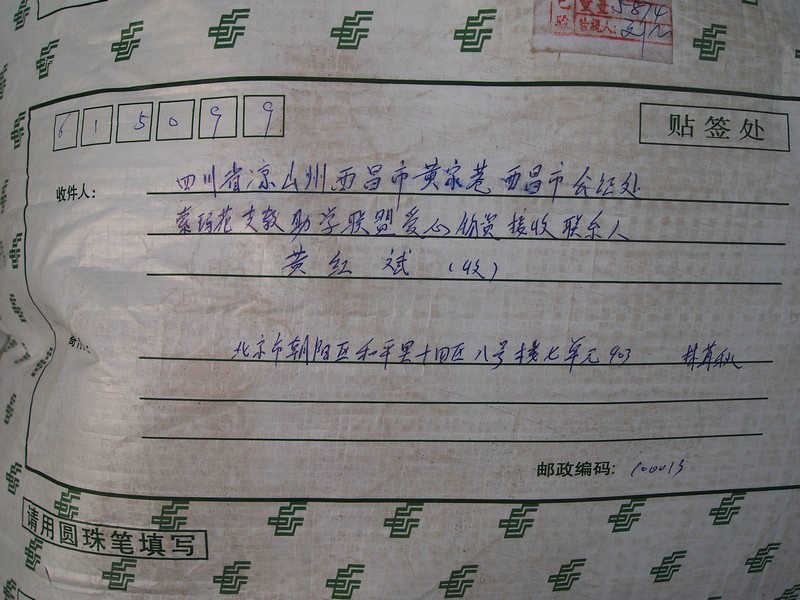 重量5874
验 检视人:
615099
贴签处
收件人: 四川省凉山州西昌市黄家巷西昌市公证处
索玛花支教助学联盟爱心物资接收联系人
黄红斌(收)
北京市朝阳区和平里十四区八号楼七单元903
邮政编码: 100013
请用圆珠笔填写